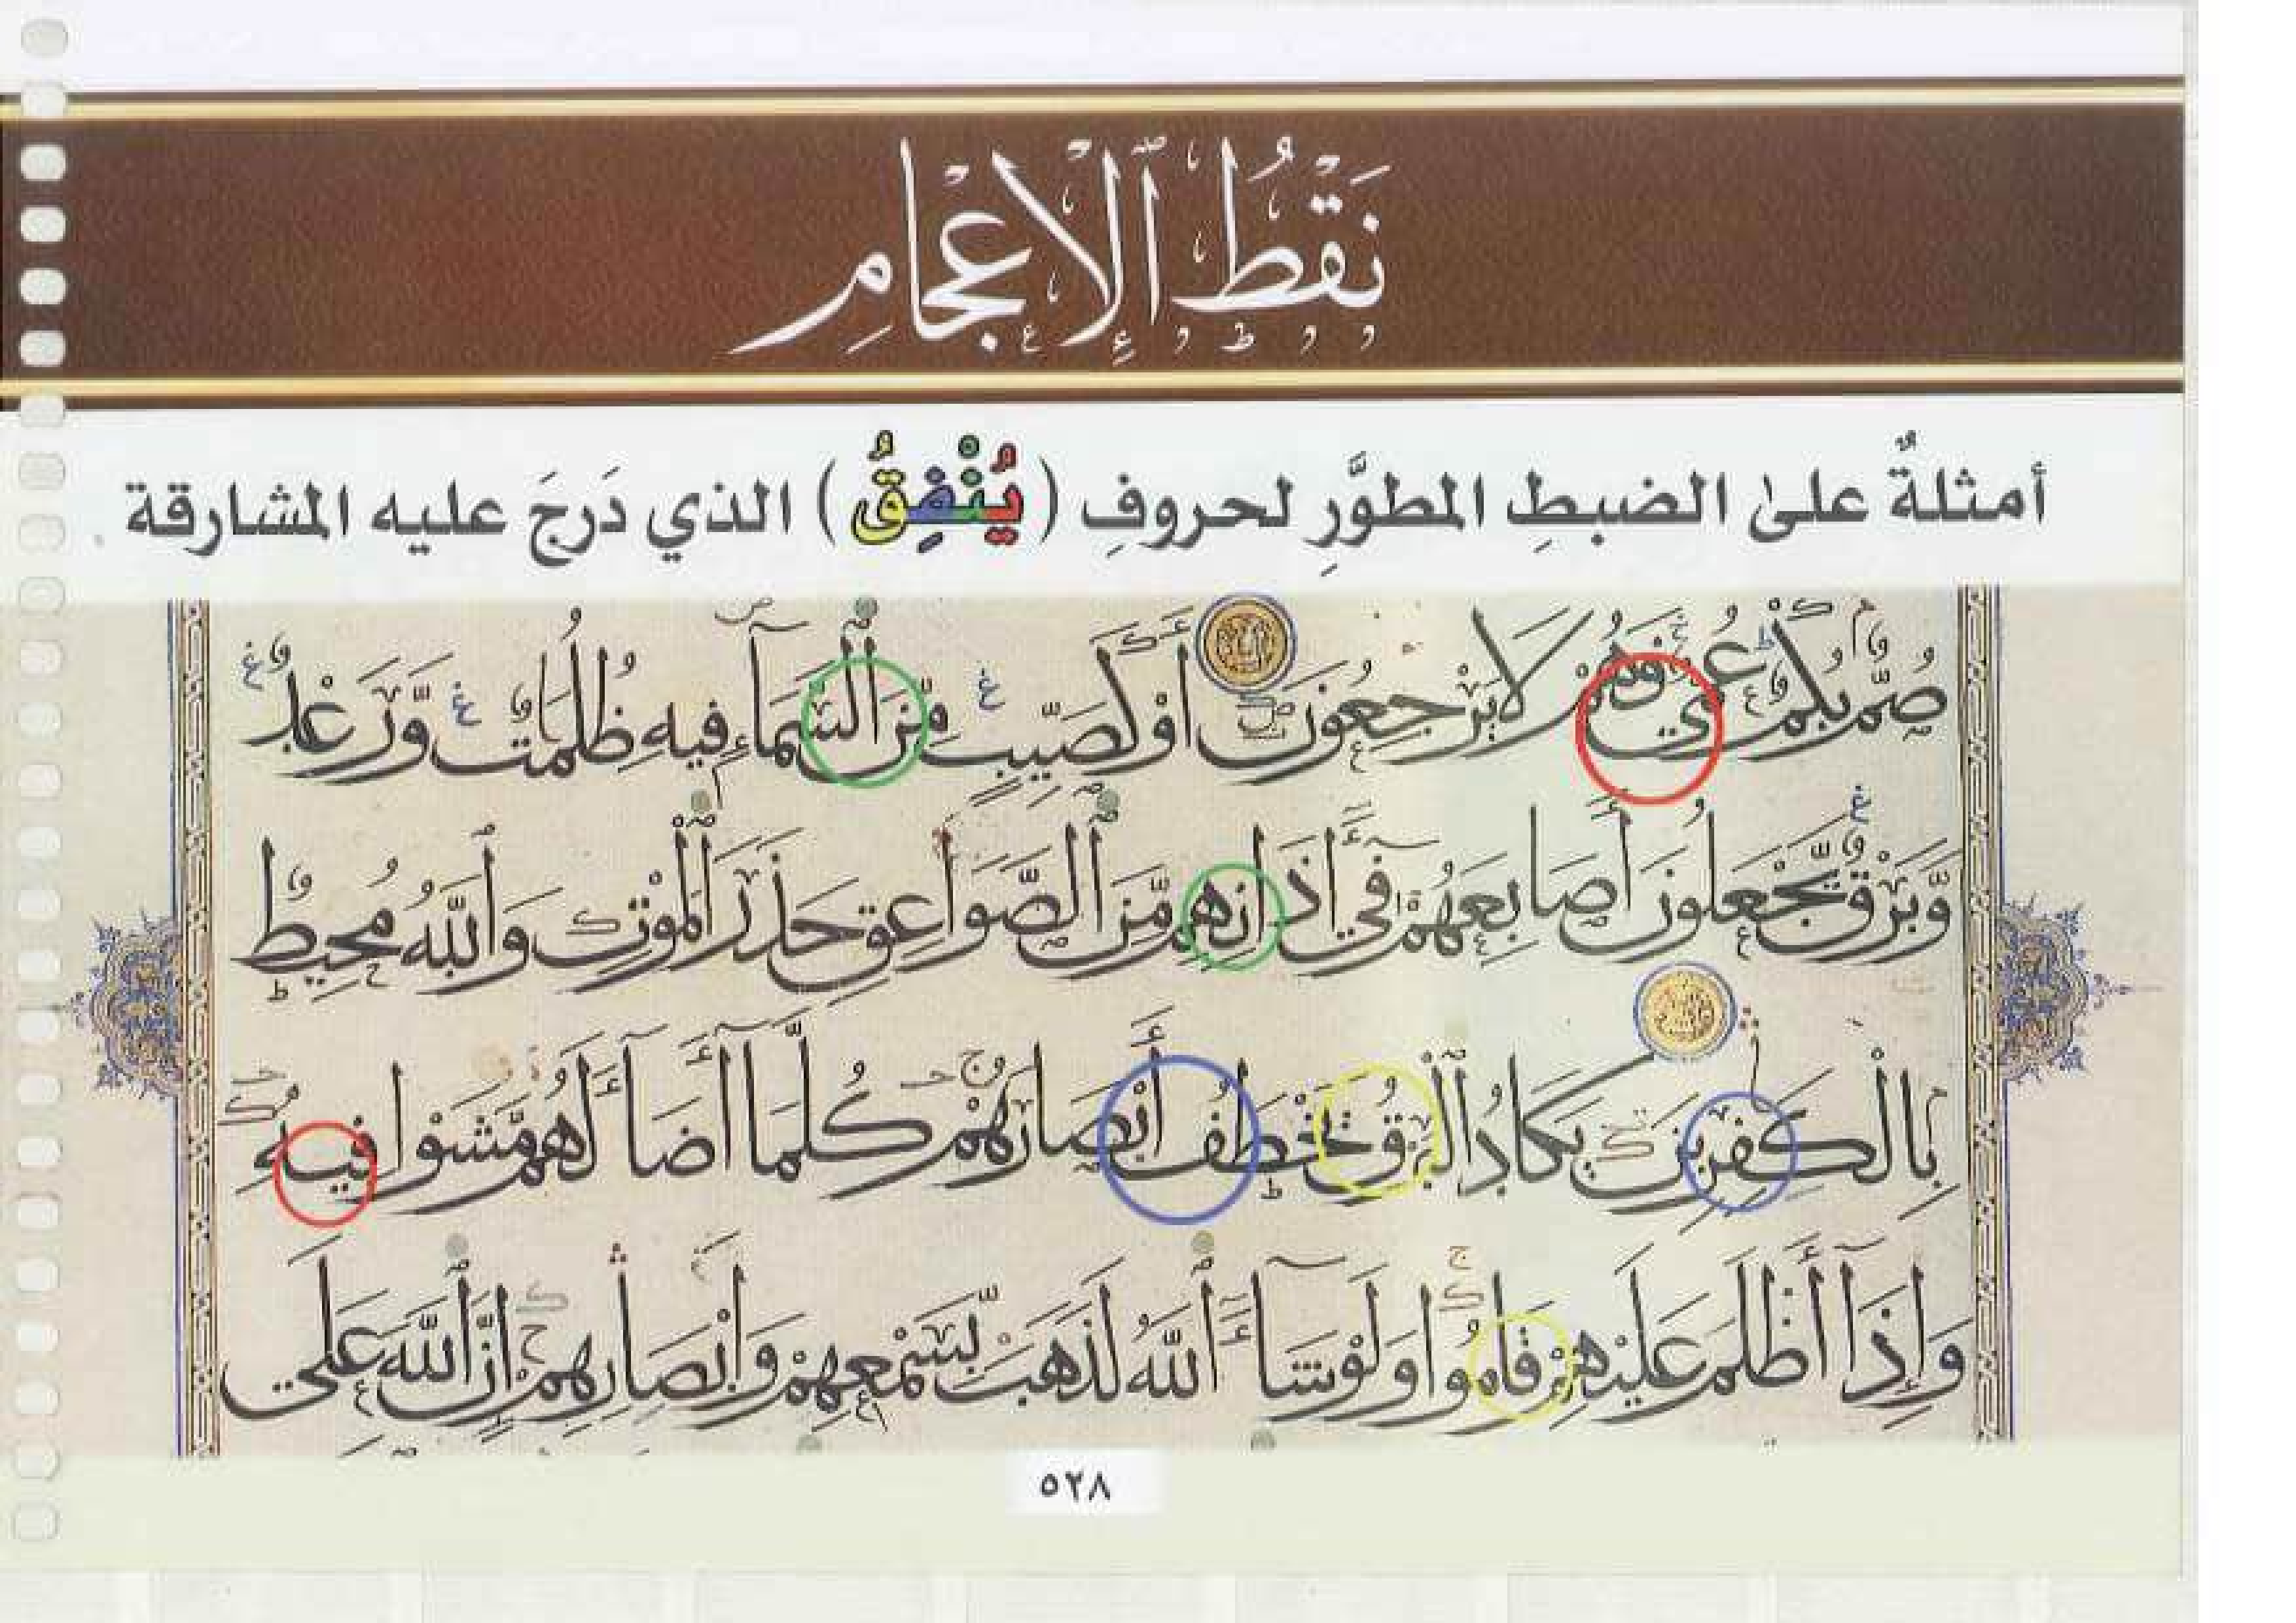 نَقْطُ ٱلْإِعْجَامِ
أمثلةٌ على الضبطِ المطوَّرِ لحروفِ (يُنْفِقُ) الذي دَرجَ عليه المشارقة
صُمٌّ بُكْمٌ عُمْيٌ فَهُمْ لَا يَرْجِعُونَ أَوْ كَصَيِّبٍ مِّنَ ٱلسَّمَآءِ فِيهِ ظُلُمَاتٌ وَّرَعْدٌ
وَّبَرْقٌ يَّجْعَلُونَ أَصَابِعَهُمْ فِيٓ اٰذَانِهِم مِّنَ ٱلصَّوَاعِقِ حَذَرَ ٱلْمَوْتِ وَٱللّٰهُ مُحِيطٌ
بِالْكٰفِرِينَ يَكَادُ ٱلْبَرْقُ يَخْطَفُ أَبْصَارَهُمْ كُلَّمَآ أَضَآءَ لَهُم مَّشَوْا فِيهِ
وَإِذَآ أَظْلَمَ عَلَيْهِمْ قَامُوا وَلَوْ شَآءَ ٱللّٰهُ لَذَهَبَ بِسَمْعِهِمْ وَأَبْصَارِهِمْ إِنَّ ٱللّٰهَ عَلَىٰ
٥٢٨